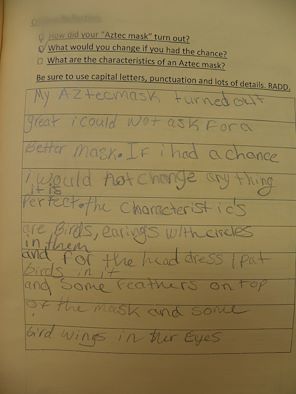 How did your "Aztec mask" turn out?
What would you change if you had the chance?
What are the characteristics of an Aztec mask?
Be sure to use capital letters, punctuation and lots of details. RADD.
My Aztecmask turned out
great i could not ask For a
Better mask. IF i had a chance
I would not change any thing
it is
Perfect. the Characteristic's
are Birds, earings with circles
in them
and For the head dress I put
birds in it
and some Feathers on top
of the mask and some
bird wings in ther Eyes